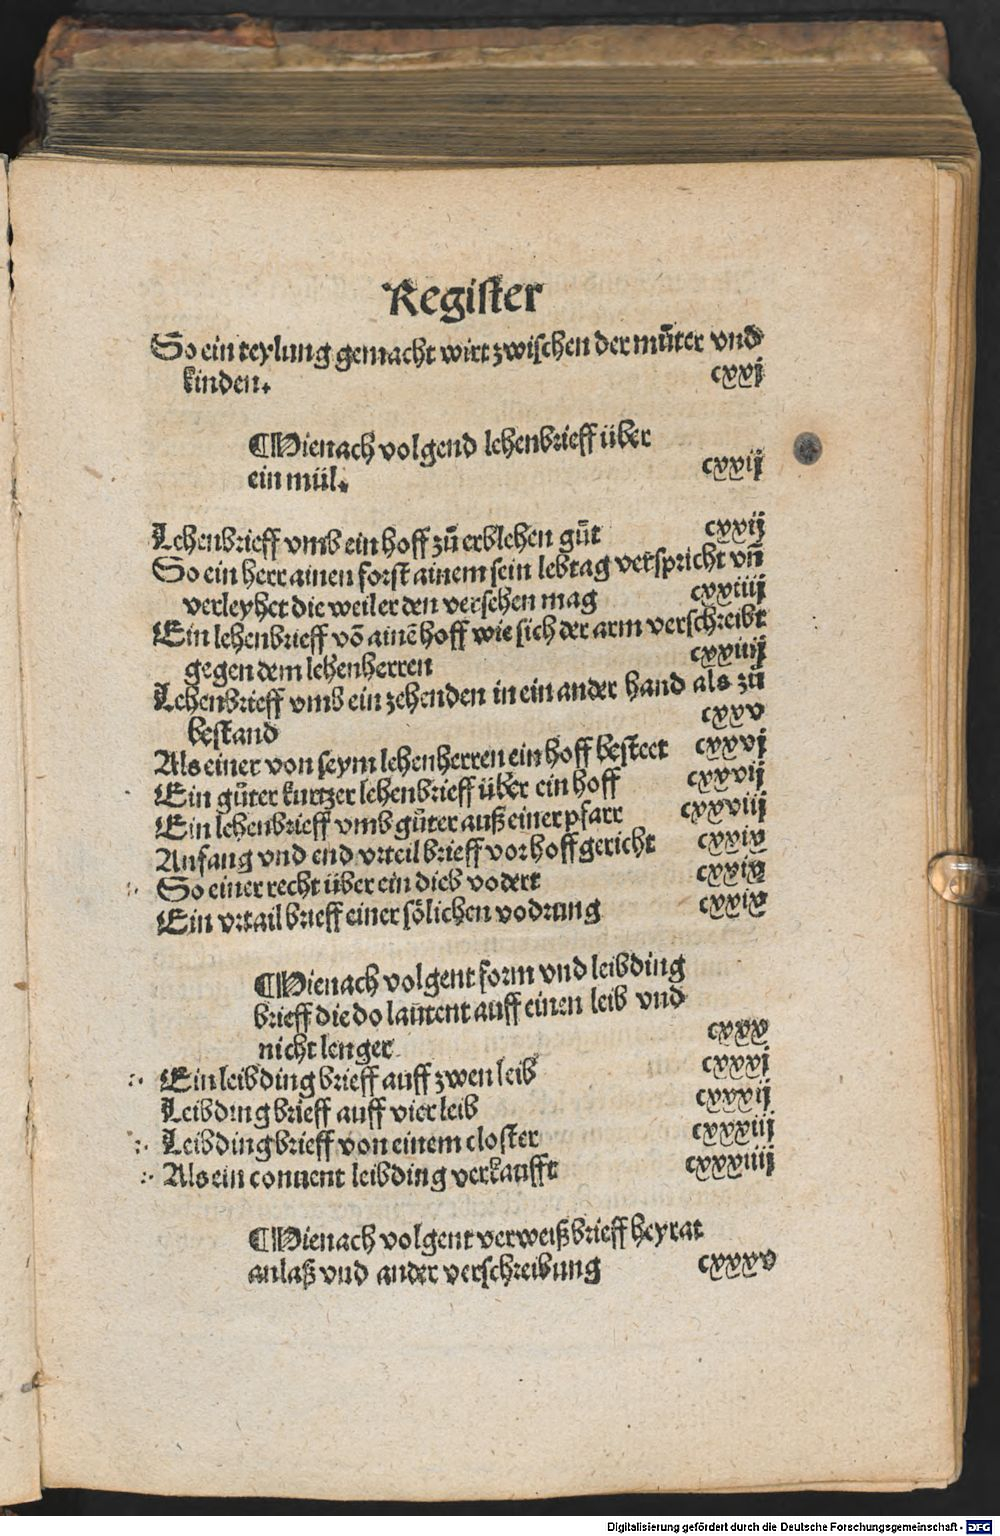 Register
So ein teylung gemacht wirt zwischen der můter vnd
kinden. cxxj
¶Hienach volgend lehenbrieff über
ein mül. cxxij
Lehenbrieff vmb ein hoff zů erblehen gůt cxxij
So ein herr ainen forst ainem sein lebtag verspricht vñ
verleyhet die weil er den versehen mag cxxiiij
Ein lehenbrieff võ ainẽ hoff wie sich der arm verschreibt
gegen dem lehenherren cxxiiij
Lehenbrieff vmb ein zehenden in ein ander hand als zů
bestand cxxv
Als einer von seym lehenherren ein hoff besteet cxxvj
Ein gůter kurtzer lehenbrieff über ein hoff cxxvij
Ein lehenbrieff vmb gůter auß einer pfarr cxxviij
Anfang vnd end vrteil brieff vor hoffgericht cxxix
So einer recht über ein dieb vodert cxxix
Ein vrtail brieff einer sölichen vodrung cxxix
¶Hienach volgent form vnd leibding
brieff die do lautent auff einen leib vnd
nicht lenger cxxx
Ein leibding brieff auff zwen leib cxxxj
Leibding brieff auff vier leib cxxxij
Leibding brieff von einem closter cxxxiij
Als ein conuent leibding verkaufft cxxxiiij
¶Hienach volgent verweiß brieff heyrat
anlaß vnd ander verschreibung cxxxv
Digitalisierung gefördert durch die Deutsche Forschungsgemeinschaft - DFG